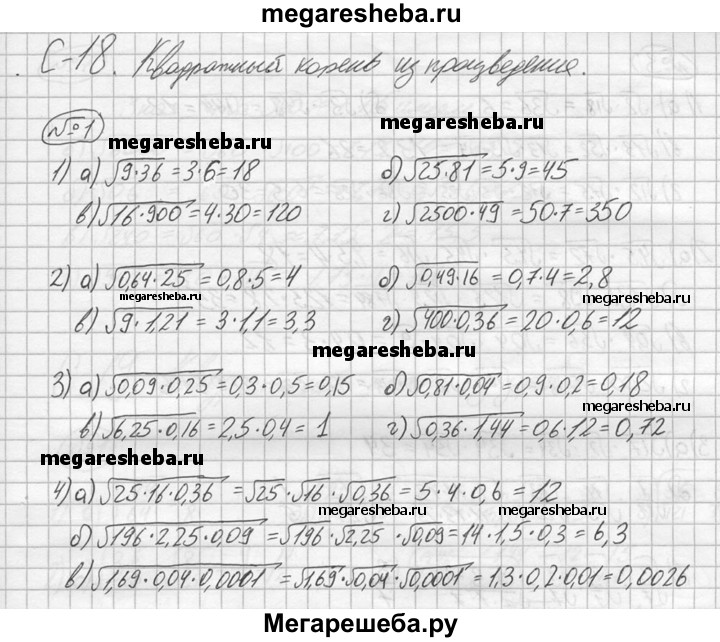 megaresheba.ru
С-18. Квадратный корень из произведения.
№1
megaresheba.ru
megaresheba.ru
1) а) √9·36 = 3·6 = 18 б) √25·81 = 5·9 = 45
в) √16·900 = 4·30 = 120 г) √2500·49 = 50·7 = 350
2) а) √0,64·25 = 0,8·5 = 4 б) √0,49·16 = 0,7·4 = 2,8
megaresheba.ru
megaresheba.ru
в) √9·1,21 = 3·1,1 = 3,3 г) √400·0,36 = 20·0,6 = 12
megaresheba.ru
3) а) √0,09·0,25 = 0,3·0,5 = 0,15 б) √0,81·0,04 = 0,9·0,2 = 0,18
megaresheba.ru
в) √6,25·0,16 = 2,5·0,4 = 1 г) √0,36·1,44 = 0,6·1,2 = 0,72
megaresheba.ru
4) а) √25·16·0,36 = √25·√16·√0,36 = 5·4·0,6 = 12
megaresheba.ru
megaresheba.ru
б) √196·2,25·0,09 = √196·√2,25·√0,09 = 14·1,5·0,3 = 6,3
в) √1,69·0,04·0,0001 = √1,69·√0,04·√0,0001 = 1,3·0,2·0,01 = 0,0026
Мегарешеба.ру